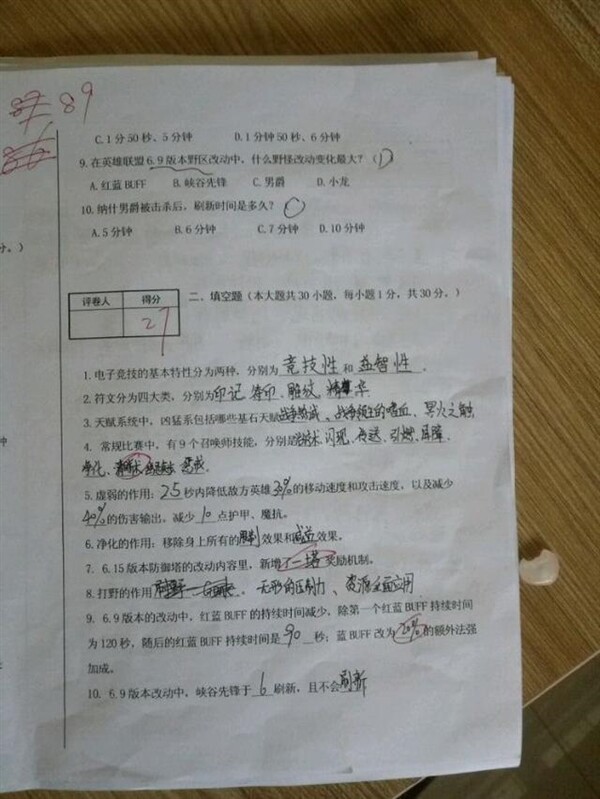 87 89
C. 1 分 50 秒、5 分钟 D. 1 分钟 50 秒、6 分钟
9. 在英雄联盟 6.9 版本野区改动中，什么野怪改动变化最大？（D）
A. 红蓝 BUFF B. 峡谷先锋 C. 男爵 D. 小龙
10. 纳什男爵被击杀后，刷新时间是多久？
A. 5 分钟 B. 6 分钟 C. 7 分钟 D. 10 分钟
分。）
评卷人 得分
27
二、填空题（本大题共 30 小题，每小题 1 分，共 30 分。）
1. 电子竞技的基本特性分为两种，分别为 竞技性 和 益智性 。
2. 符文分为四大类，分别为 印记、符印、雕纹、精华
3. 天赋系统中，凶猛系包括哪些基石天赋 战争热诚、战争领主的嗜血、冥火之触
4. 常规比赛中，有 9 个召唤师技能，分别是 治疗术、闪现、传送、引燃、屏障、
净化、惩戒
5. 虚弱的作用：2.5 秒内降低敌方英雄 30% 的移动速度和攻击速度，以及减少
40% 的伤害输出，减少 10 点护甲、魔抗。
6. 净化的作用：移除身上所有的 限制 效果和 减益 效果。
7. 6.15 版本防御塔的改动内容里，新增 一塔 奖励机制。
8. 打野的作用 无形的压制力、资源全面应用
9. 6.9 版本的改动中，红蓝 BUFF 的持续时间减少，除第一个红蓝 BUFF 持续时间
为 120 秒，随后的红蓝 BUFF 持续时间是 90 秒；蓝 BUFF 改为 20% 的额外法强
加成。
钟
10. 6.9 版本改动中，峡谷先锋于 6 刷新，且不会 刷新